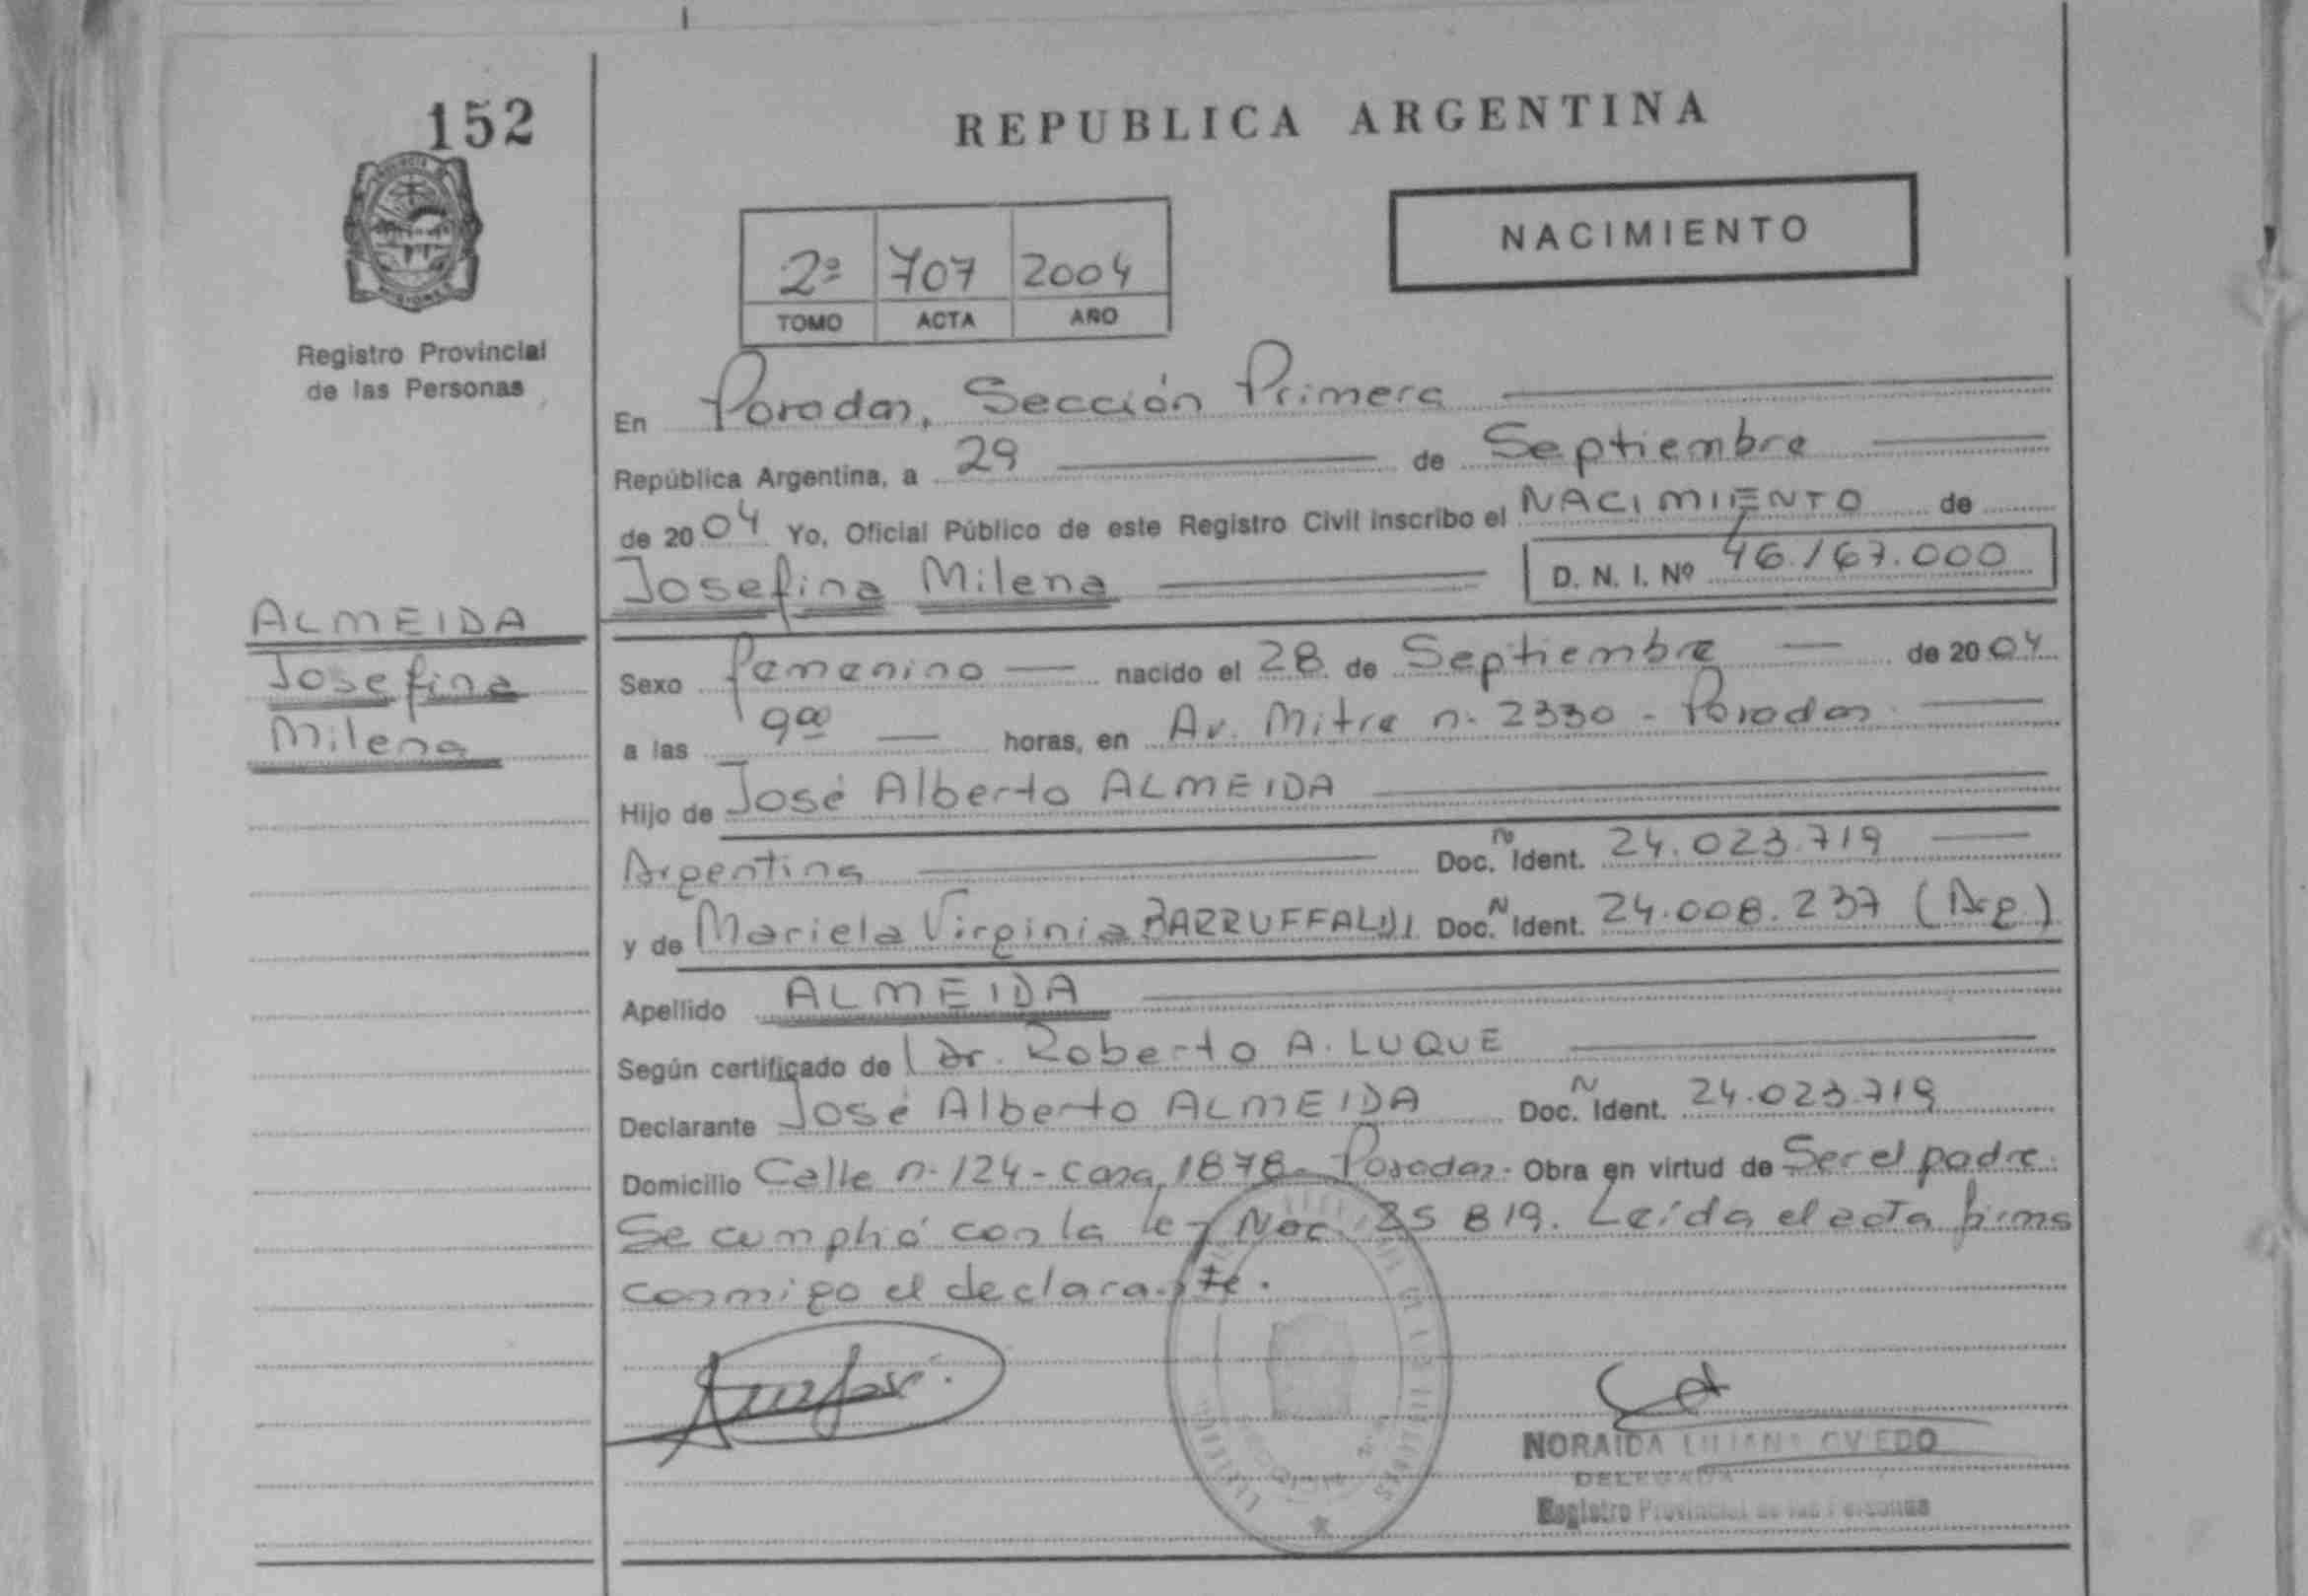 152
REPUBLICA ARGENTINA
NACIMIENTO
2º 707 2004
TOMO ACTA AÑO
Registro Provincial
de las Personas
En Posadas, Sección Primera
República Argentina, a 29 de Septiembre
de 2004 Yo, Oficial Público de este Registro Civil inscribo el NACIMIENTO de
Josefina Milena D. N. I. Nº 46.167.000
ALMEIDA
Josefina
Milena
Sexo femenino nacido el 28 de Septiembre de 2004
a las 9 00 horas, en Av. Mitre n. 2330 - Posadas
Hijo de José Alberto ALMEIDA
Argentina Doc. N Ident. 24.023.719
y de Mariela Virginia BARRUFFALDI Doc. N Ident. 24.008.237 (Arg.)
Apellido ALMEIDA
Según certificado de Dr. Roberto A. LUQUE
Declarante José Alberto ALMEIDA Doc. N Ident. 24.023.719
Domicilio Calle n. 124 - casa 1878 - Posadas. Obra en virtud de Ser el padre.
Se cumplió con la ley Nac. 25 819. Leída el acta firma
conmigo el declarante.
NORAIDA LILIANA OVIEDO
DELEGADA
Registro Provincial de las Personas